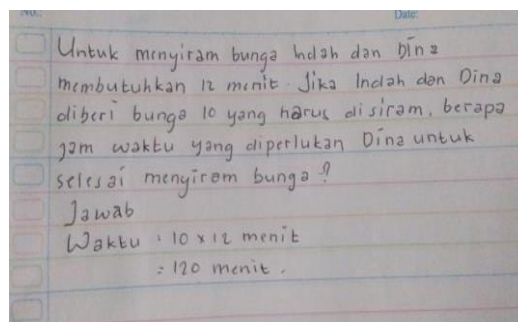 No.:
Date:
Untuk menyiram bunga Indah dan Dina
membutuhkan 12 menit. Jika Indah dan Dina
diberi bunga 10 yang harus disiram, berapa
jam waktu yang diperlukan Dina untuk
selesai menyiram bunga?
Jawab
Waktu : 10 x 12 menit
= 120 menit.